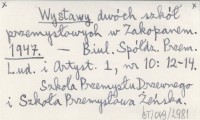 Wystawy dwóch szkół
przemysłowych w Zakopanem.
1947. — Biul. Spółdz. Przem.
Lud. i Artyst. 1, nr 10: 12-14.
Szkoła Przemysłu Drzewnego
i Szkoła Przemysłowa Żeńska.